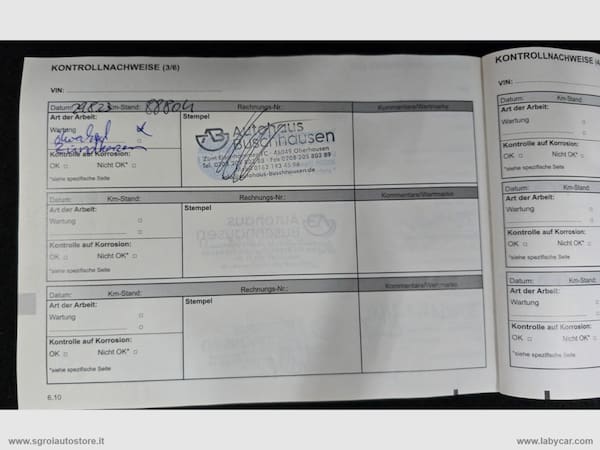 KONTROLLNACHWEISE (3/6)
VIN:
Datum: 29.8.23 Km-Stand: 88804 Rechnungs-Nr.: Kommentare/Wertmarke
Art der Arbeit: Stempel
Wartung
Kontrolle auf Korrosion:
OK Nicht OK*
*siehe spezifische Seite
AB Autohaus
Buschhausen
46049 Oberhausen
Autohaus-Buschhausen.de
Datum: Km-Stand: Rechnungs-Nr.: Kommentare/Wertmarke
Art der Arbeit: Stempel
Wartung
Kontrolle auf Korrosion:
OK Nicht OK*
*siehe spezifische Seite
Datum: Km-Stand: Rechnungs-Nr.: Kommentare/Wertmarke
Art der Arbeit: Stempel
Wartung
Kontrolle auf Korrosion:
OK Nicht OK*
*siehe spezifische Seite
6.10
KONTROLLNACHWEISE (4
VIN:
Datum: Km-Stand:
Art der Arbeit:
Wartung
Kontrolle auf Korrosion:
OK Nicht OK*
*siehe spezifische Seite
Datum: Km-Stand:
Art der Arbeit:
Wartung
Kontrolle auf Korrosion:
OK Nicht OK*
*siehe spezifische Seite
Datum: Km-Stand:
Art der Arbeit:
Wartung
Kontrolle auf Korrosion:
OK Nicht OK*
*siehe spezifische Seite
www.sgroiautostore.it www.labycar.com